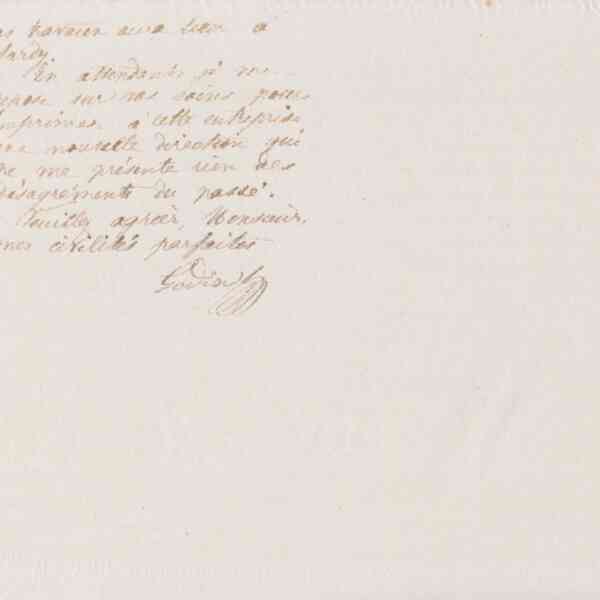 aura lieu à
En attendant je me
repose sur vos soins pour
imprimer à cette entreprise
une nouvelle direction qui
ne me présente rien des
désagréments du passé.
Veuillez agréer, Monsieur,
mes civilités parfaites
Godin